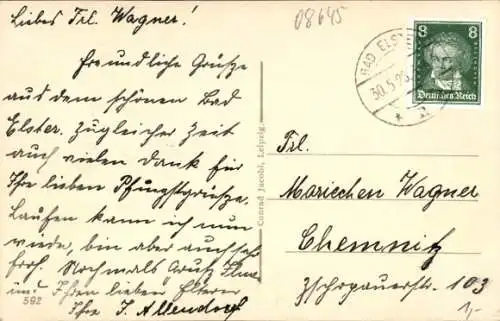 Liebes Frl. Wagner!
Freundliche Grüße
aus dem schönen Bad
Elster. Zugleicher Zeit
auch vielen dank für
Ihre lieben Pfingstgrüsse.
Laufen kann ich nun
wieder, bin aber auch sehr
froh. Nochmals Gruß Ihnen
und Ihren lieben Eltern
Ihre J. Allendorf
592
Conrad Jacobi, Leipzig.
08645
BAD ELST
30.5.
8 8
Deutsches Reich
Frl.
Mariechen Wagner
Chemnitz
Zschopauerstr. 103
1,-